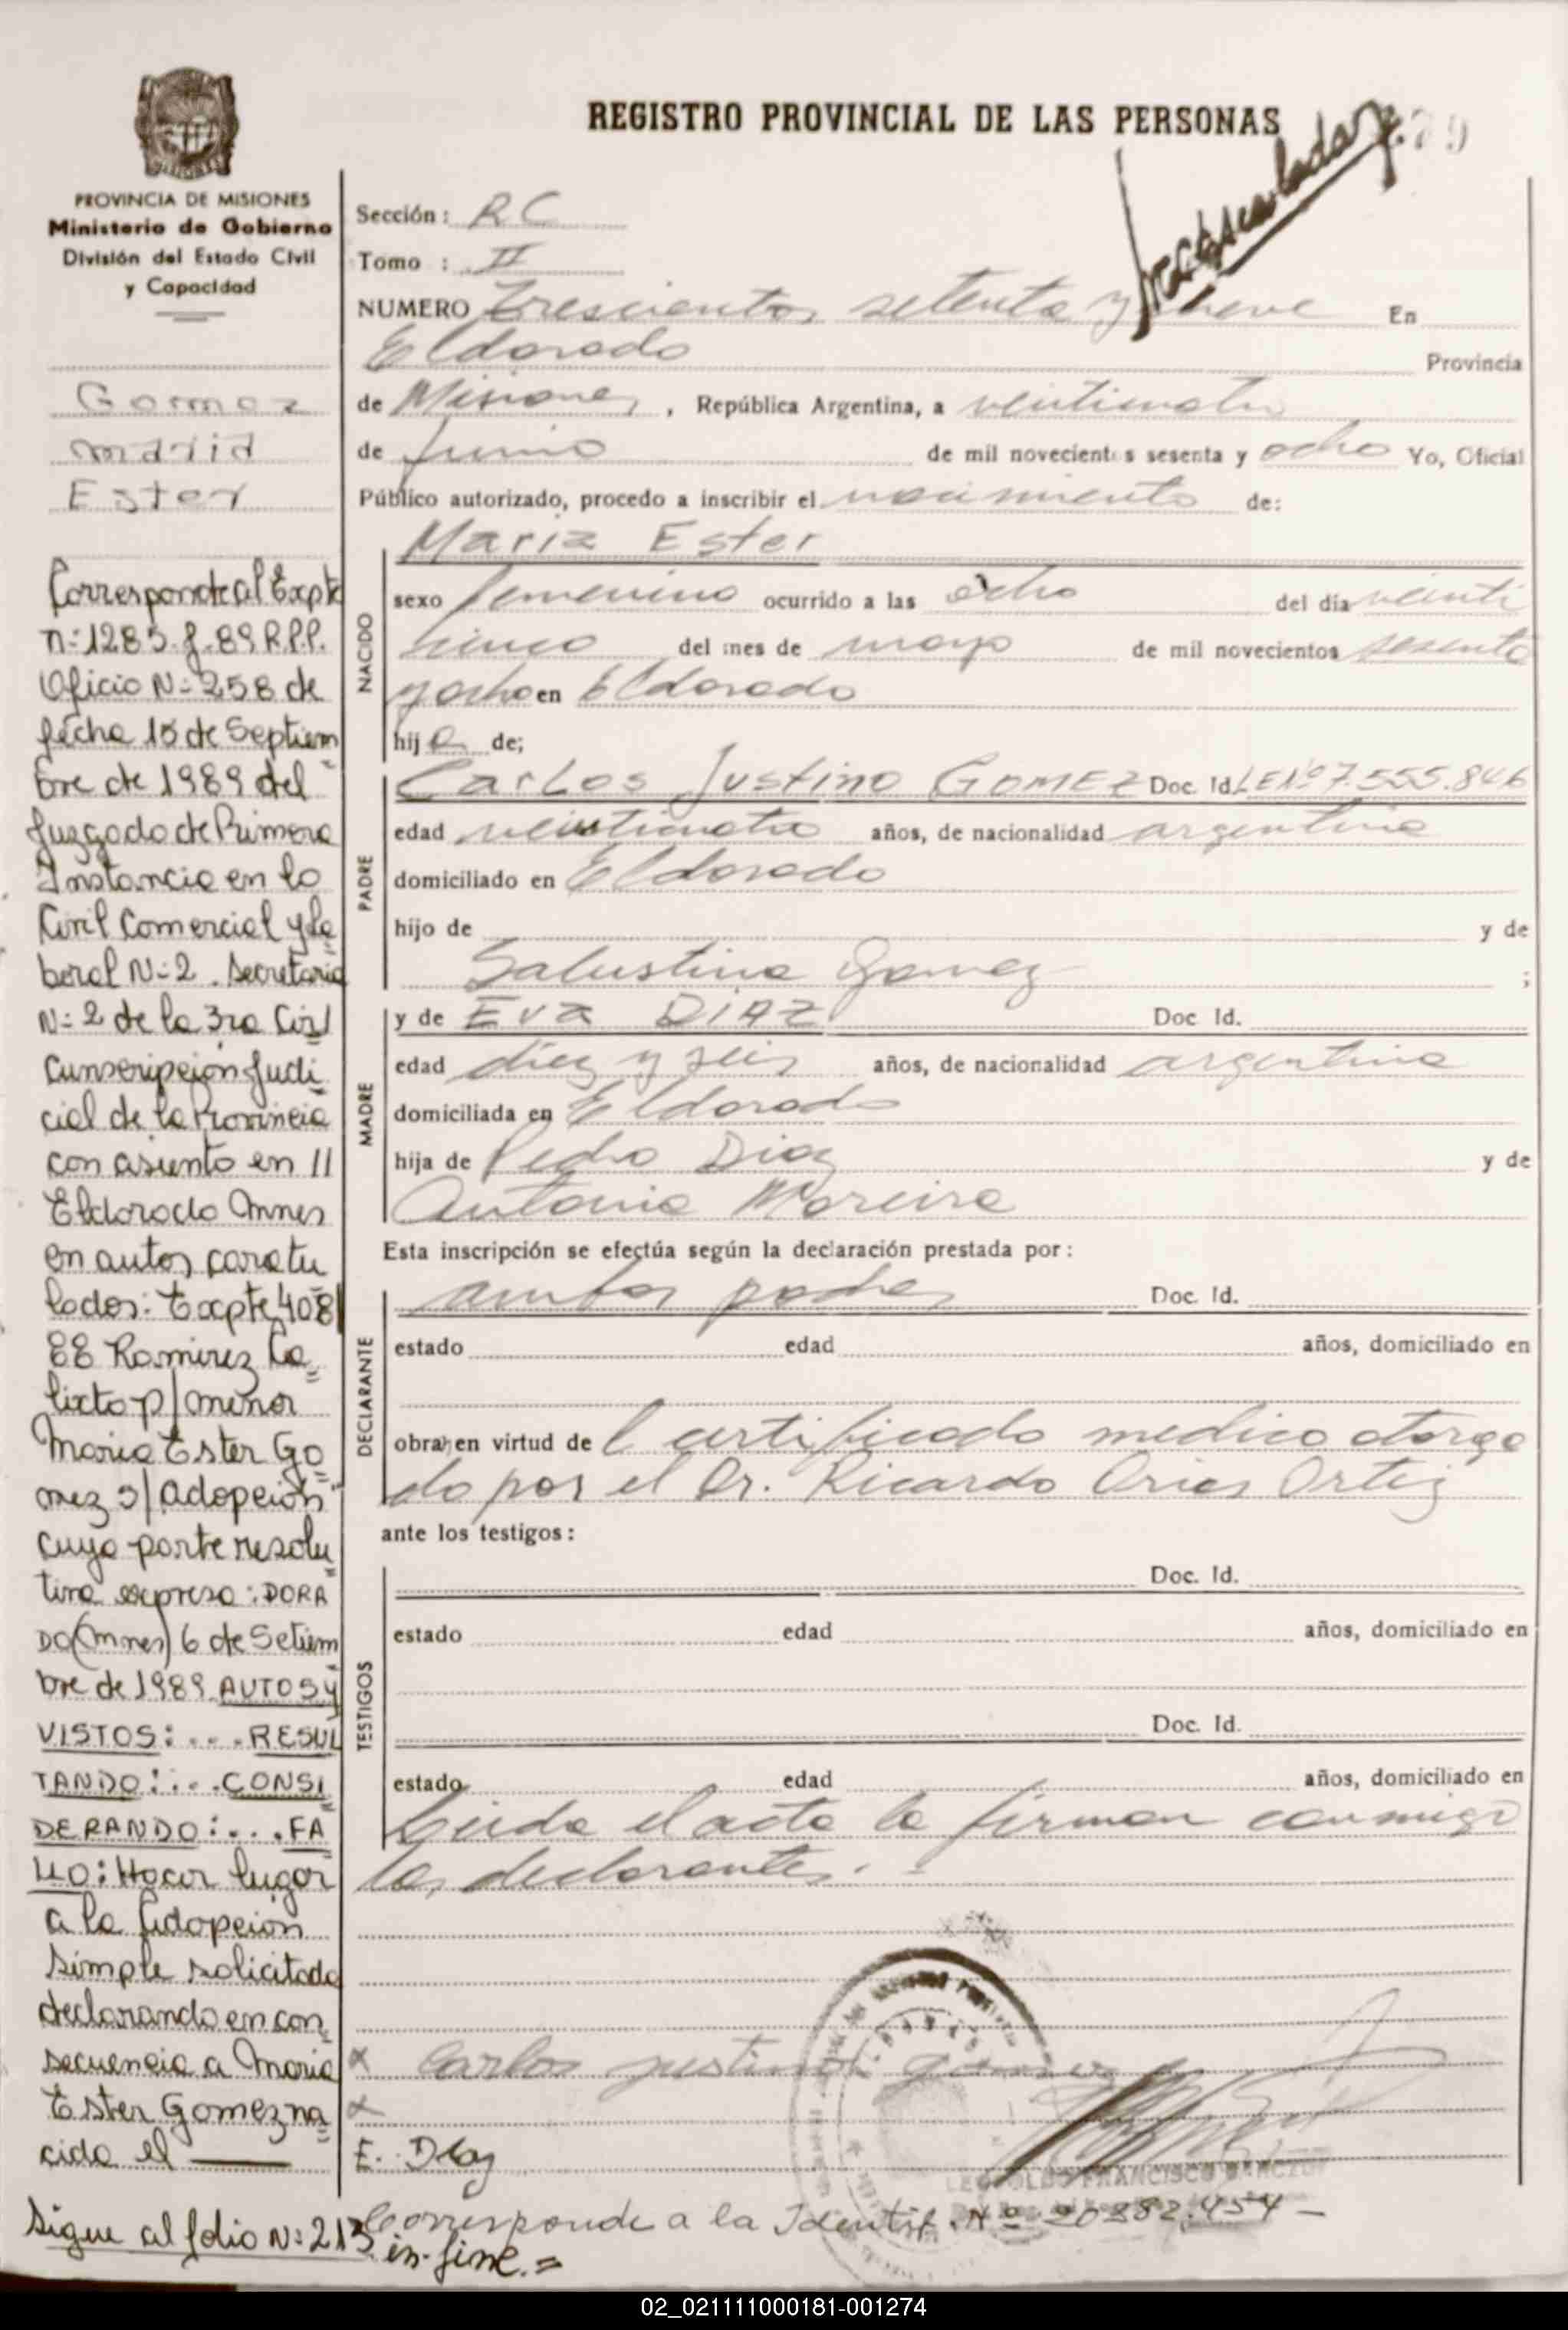 REGISTRO PROVINCIAL DE LAS PERSONAS
PROVINCIA DE MISIONES
Ministerio de Gobierno
División del Estado Civil
y Capacidad
Gomez
Maria
Ester
Corresponde al Expte
n=1285.g.89 R.P.P.
Oficio N=258 de
fecha 15 de Septiem
bre de 1989 del
Juzgado de Primera
Instancia en lo
Civil Comercial y La
boral N=2. Secretaria
N=2 de la 3ra Cir
cunscripción Judi
cial de la Provincia
con asiento en
Eldorado Mnes
en autos caratu
lados: Expte 408
88 Ramirez Ca
lixto p/menor
Maria Ester Go
mez s/Adopción
cuya parte resolu
tiva expresa: DORA
DO (Mnes) 6 de Setiem
bre de 1989. AUTOS Y
VISTOS: ... RESUL
TANDO: ... CONSI
DERANDO: ... FA
LLO: Hacer lugar
a la Adopción
Simple solicitada
declarando en con
secuencia a Maria
Ester Gomez na
cida el
Sigue al folio N=213
Sección: RC
Tomo : II
NUMERO Trescientos setenta y nueve En
Eldorado Provincia
de Misiones, República Argentina, a veinticuatro
de Junio de mil novecientos sesenta y ocho Yo, Oficial
Público autorizado, procedo a inscribir el nacimiento de:
NACIDO
Maria Ester
sexo femenino ocurrido a las ocho del día veinti
cinco del mes de mayo de mil novecientos sesenta
y ocho en Eldorado
hija de;
PADRE
Carlos Justino GOMEZ Doc. Id. LE Nº 7.555.846
edad veinticuatro años, de nacionalidad argentina
domiciliado en Eldorado
hijo de y de
Salustina Gomez ;
MADRE
y de Eva DIAZ Doc Id.
edad diez y seis años, de nacionalidad argentina
domiciliada en Eldorado
hija de Pedro Diaz y de
Antonia Moreira
Esta inscripción se efectúa según la declaración prestada por:
DECLARANTE
ambos padres Doc. Id.
estado edad años, domiciliado en
obra en virtud del certificado medico otorga
do por el Dr. Ricardo Arias Ortiz
ante los testigos:
TESTIGOS
Doc. Id.
estado edad años, domiciliado en
Doc. Id.
estado edad años, domiciliado en
Leida el acta la firman conmigo
los declarantes.
Carlos justino gomez
E. Diaz
Corresponde a la Identif. Nº 20.882.454 -
in-fine.=
02_021111000181-001274